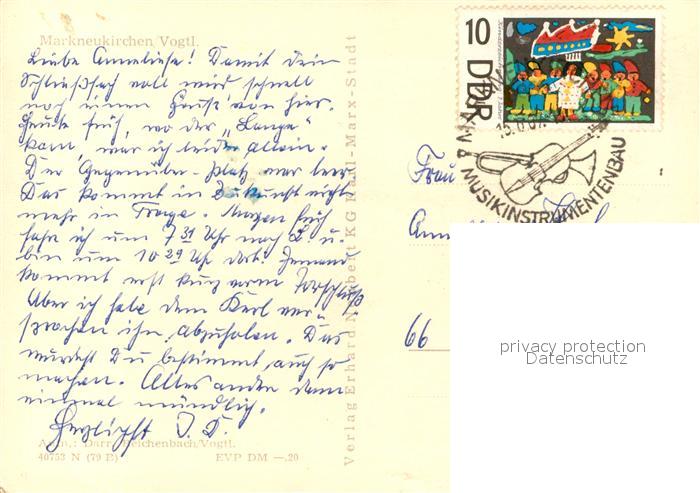 Markneukirchen Vogtl.
Liebe Anneliese! Damit Dein
Schließfach voll wird schnell
noch einen Gruß von hier.
Heute früh, wo der "Lange"
kam, war ich leider allein.
Der Gegenüber-Platz war leer.
Das kommt in Zukunft nicht
mehr in Frage. Morgen früh
fahre ich um 7 31 Uhr nach Z. u.
bin um 10 29 Uhr dort. Jemand
kommt erst kurz vorm
Aber ich habe dem Kerl ver-
sprochen ihn abzuholen. Das
würdest Du bestimmt auch so
machen. Alles andre dann
einmal mündlich.
Herzlichst
Aufn.: Darr, Reichenbach/Vogtl.
40753 N (79 B) EVP DM —,20
Verlag Erhard Neubert KG Karl-Marx-Stadt
10
DDR
MUSIKINSTRUMENTENBAU
Frau
66
privacy protection
Datenschutz